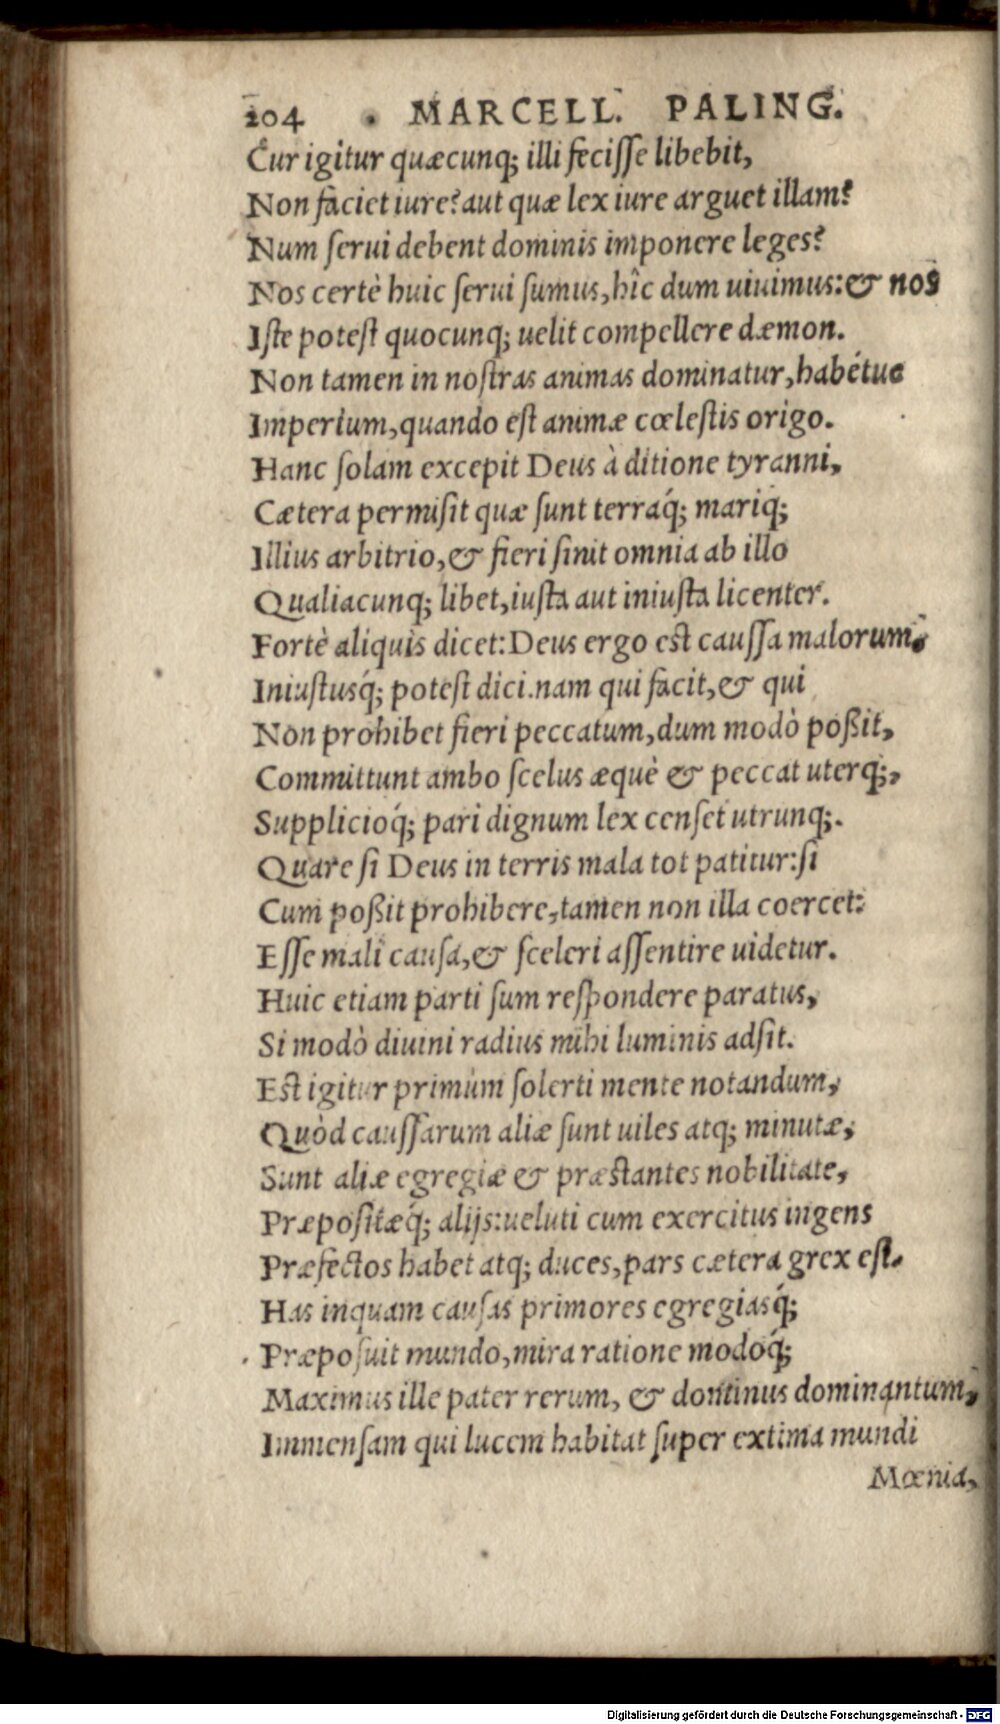 204 MARCELL. PALING.
Cur igitur quæcunq; illi fecisse libebit,
Non faciet iure? aut quæ lex iure arguet illam?
Num serui debent dominis imponere leges?
Nos certè huic serui sumus, hîc dum uiuimus: & nos
Iste potest quocunq; uelit compellere dæmon.
Non tamen in nostras animas dominatur, habétue
Imperium, quando est animæ cœlestis origo.
Hanc solam excepit Deus à ditione tyranni,
Cætera permisit quæ sunt terraq́; mariq́;
Illius arbitrio, & fieri sinit omnia ab illo
Qualiacunq; libet, iusta aut iniusta licenter.
Fortè aliquis dicet: Deus ergo est caussa malorum,
Iniustusq́; potest dici. nam qui facit, & qui
Non prohibet fieri peccatum, dum modò poßit,
Committunt ambo scelus æquè & peccat uterq;,
Supplicioq́; pari dignum lex censet utrunq;.
Quare si Deus in terris mala tot patitur: si
Cum poßit prohibere, tamen non illa coercet:
Esse mali causa, & sceleri assentire uidetur.
Huic etiam parti sum respondere paratus,
Si modò diuini radius mihi luminis adsit.
Est igitur primùm solerti mente notandum,
Quòd caussarum aliæ sunt uiles atq; minutæ,
Sunt aliæ egregiæ & præstantes nobilitate,
Præpositæq́; alijs: ueluti cum exercitus ingens
Præfectos habet atq; duces, pars cætera grex est.
Has inquam causas primores egregiasq́;
Præposuit mundo, mira ratione modoq́;
Maximus ille pater rerum, & dominus dominantum,
Immensam qui lucem habitat super extima mundi
Mœnia,
Digitalisierung gefördert durch die Deutsche Forschungsgemeinschaft - DFG